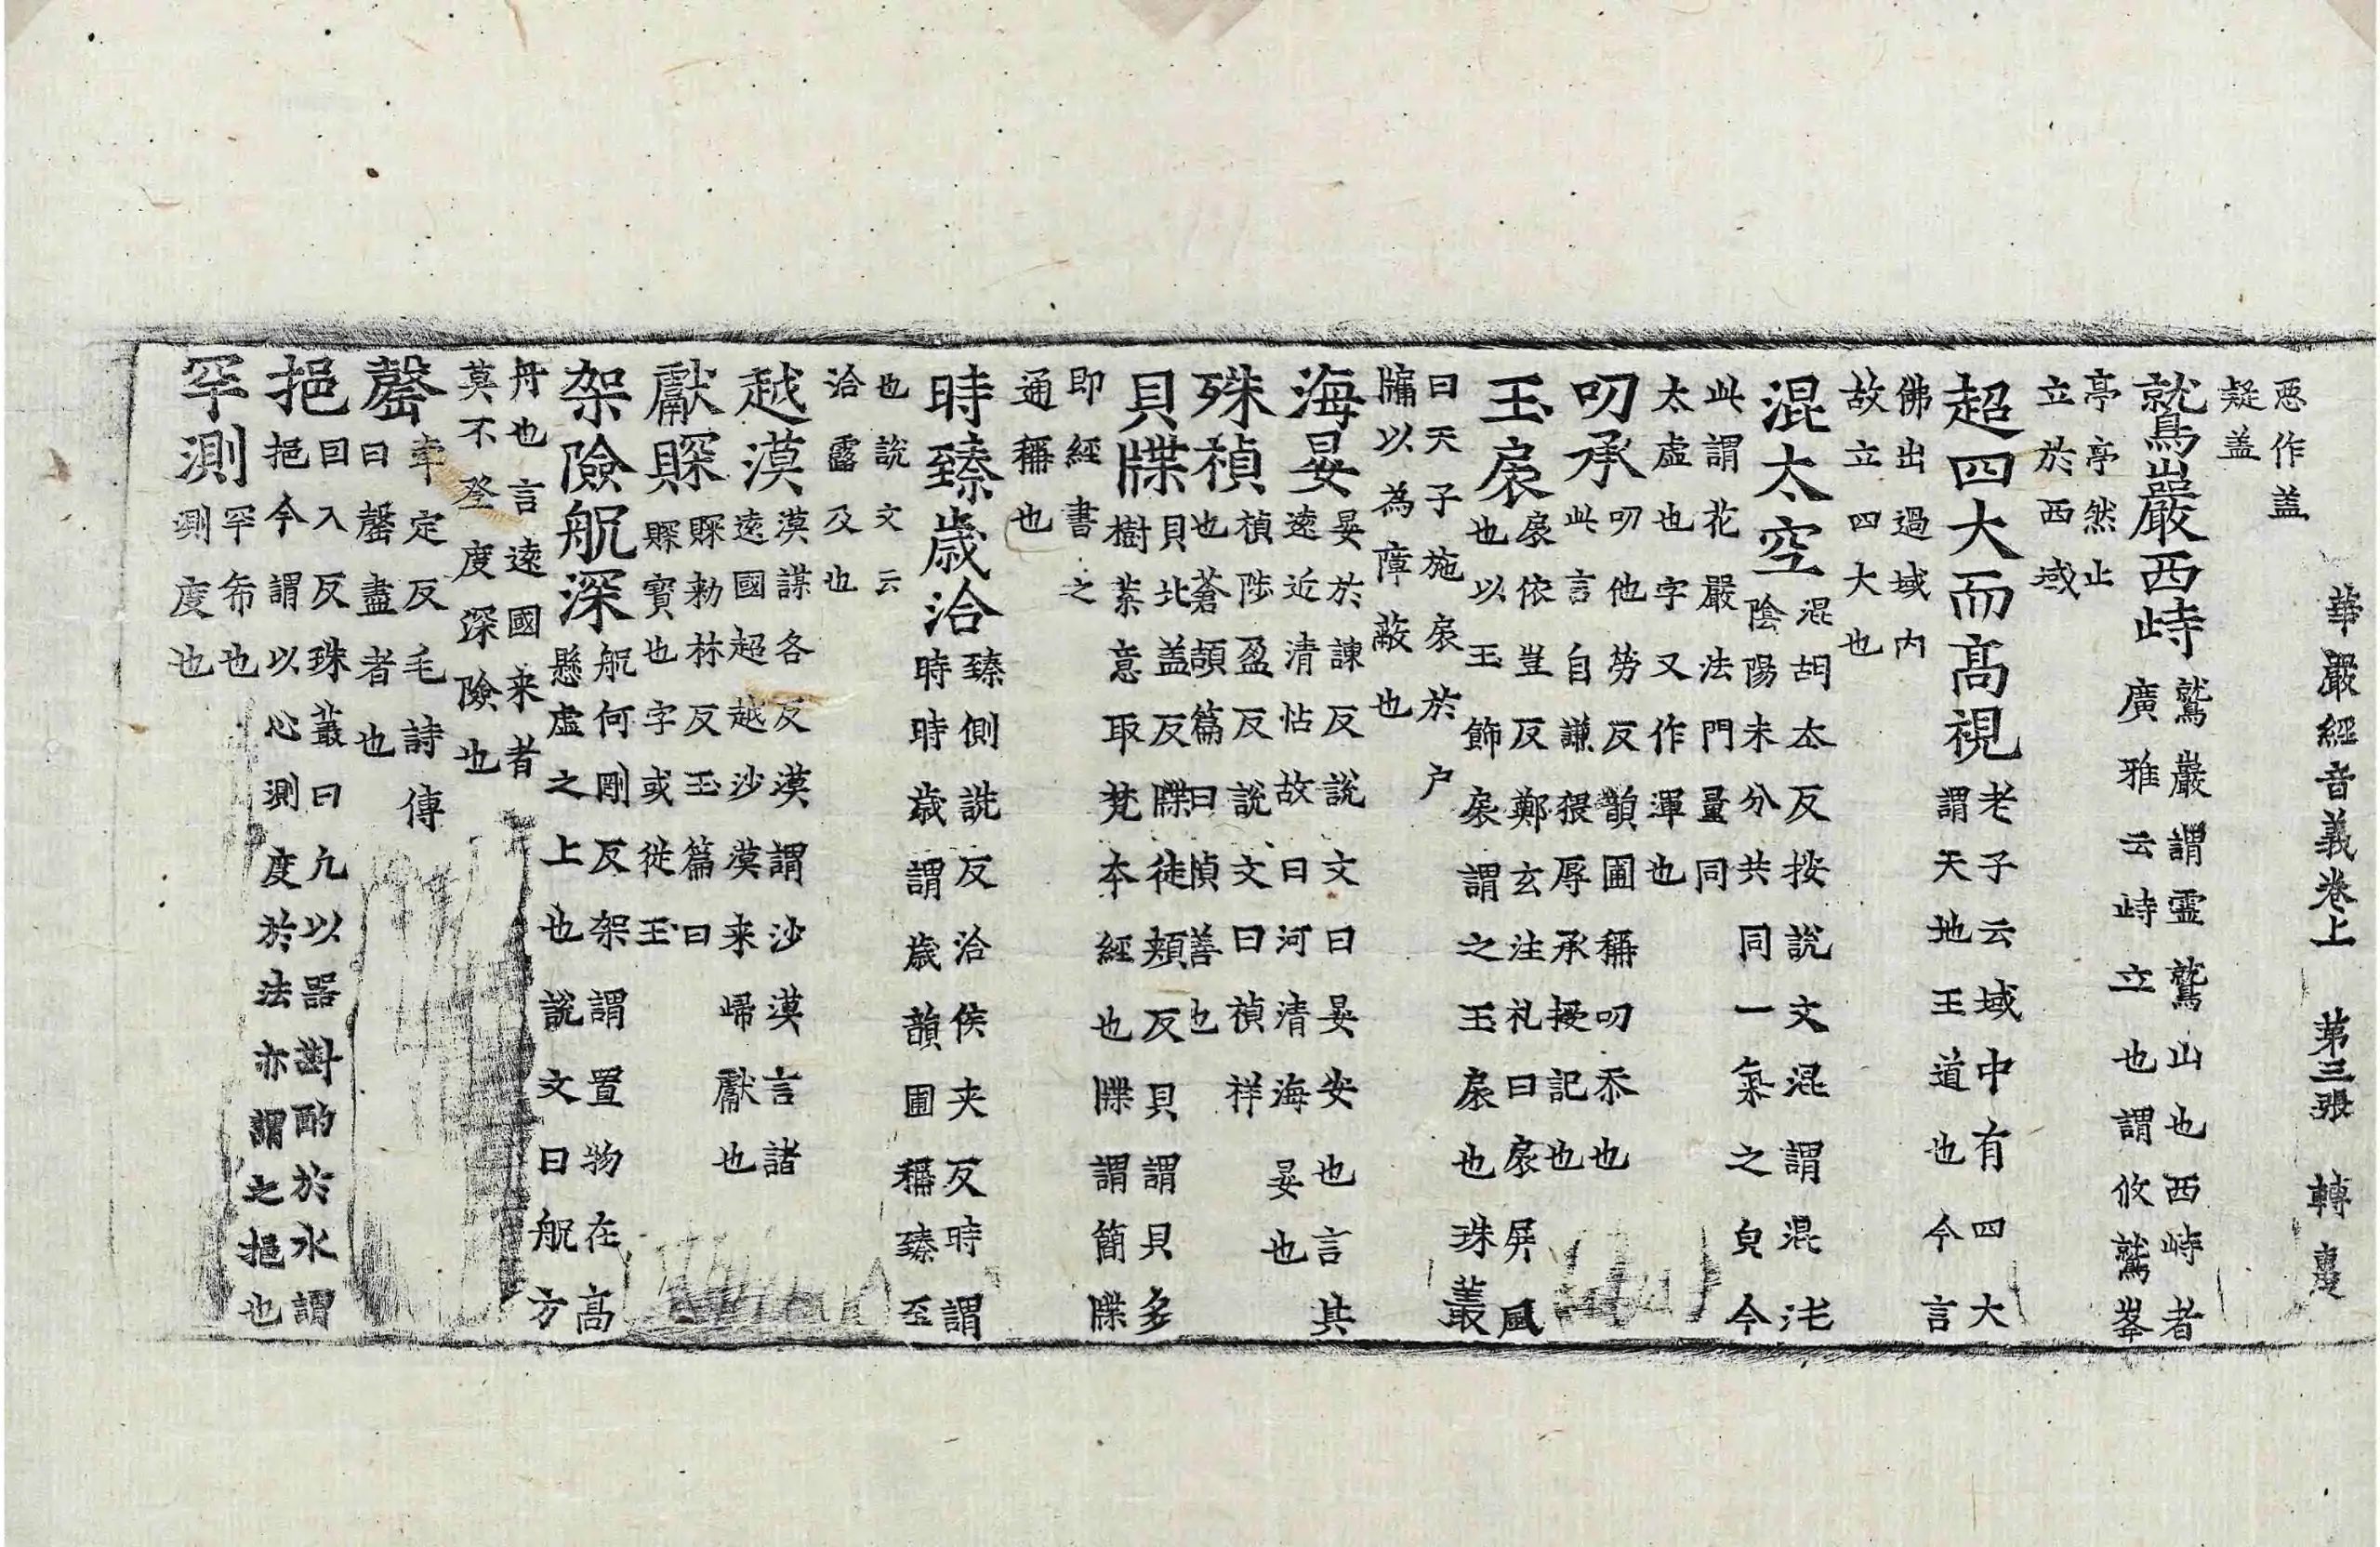 華嚴經音義卷上 第三張 轉
恶作盖
疑盖
鷲巖西峙 鷲巖謂霊鷲山也西峙者
廣雅云峙立也謂攸鷲峯
亭亭然止
立於西域
超四大而髙視 老子云域中有四大
謂天地王道也今言
佛出過域内
故立四大也
混太空 混胡太反按说文混謂混沌
陰陽未分共同一氣之皃今
此謂花嚴法門量同
太虚也字又作渾也
叨承 叨他勞反韻圃稱叨忝也
此言自謙猥辱承授記也
玉扆 扆依豈反鄭玄注礼曰扆屏風
也以玉飾扆謂之玉扆也珠叢
曰天子施扆於户
牖以為障蔽也
海晏 晏於諫反說文曰晏安也言其
遠近清怗故曰河清海晏也
殊禎 禎陟盈反說文曰禎祥
也蒼頡篇曰禎善也
貝牒 貝北盖反牒徒頰反貝謂貝多
樹葉意取梵夲經也牒謂簡牒
即經書之
通稱也
時臻歳洽 臻側詵反洽侯夹反時謂
時時歳謂歳韻圃稱臻至
也說文云
洽霑及也
越漠 漠謨各反漠謂沙漠言諸
遠國超越沙漠来歸獻也
獻賝 賝勑林反玉篇曰
賝寳也字或從玉
架險航深 航何剛反架謂置物在髙
懸虚之上也說文曰航方
舟也言遠國来者
莫不登度深險也
罄 牽定反毛詩傳
曰罄盡者也
挹 回入反珠叢曰凢以器斟酌於水謂
挹今謂以心測度於法亦謂之挹也
罕測 罕希也
測度也